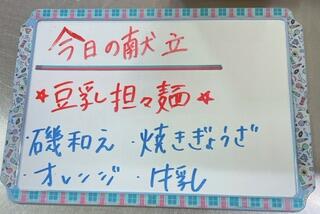 今日の献立
★豆乳担々麺★
・磯和え ・焼きぎょうざ
・オレンジ ・牛乳